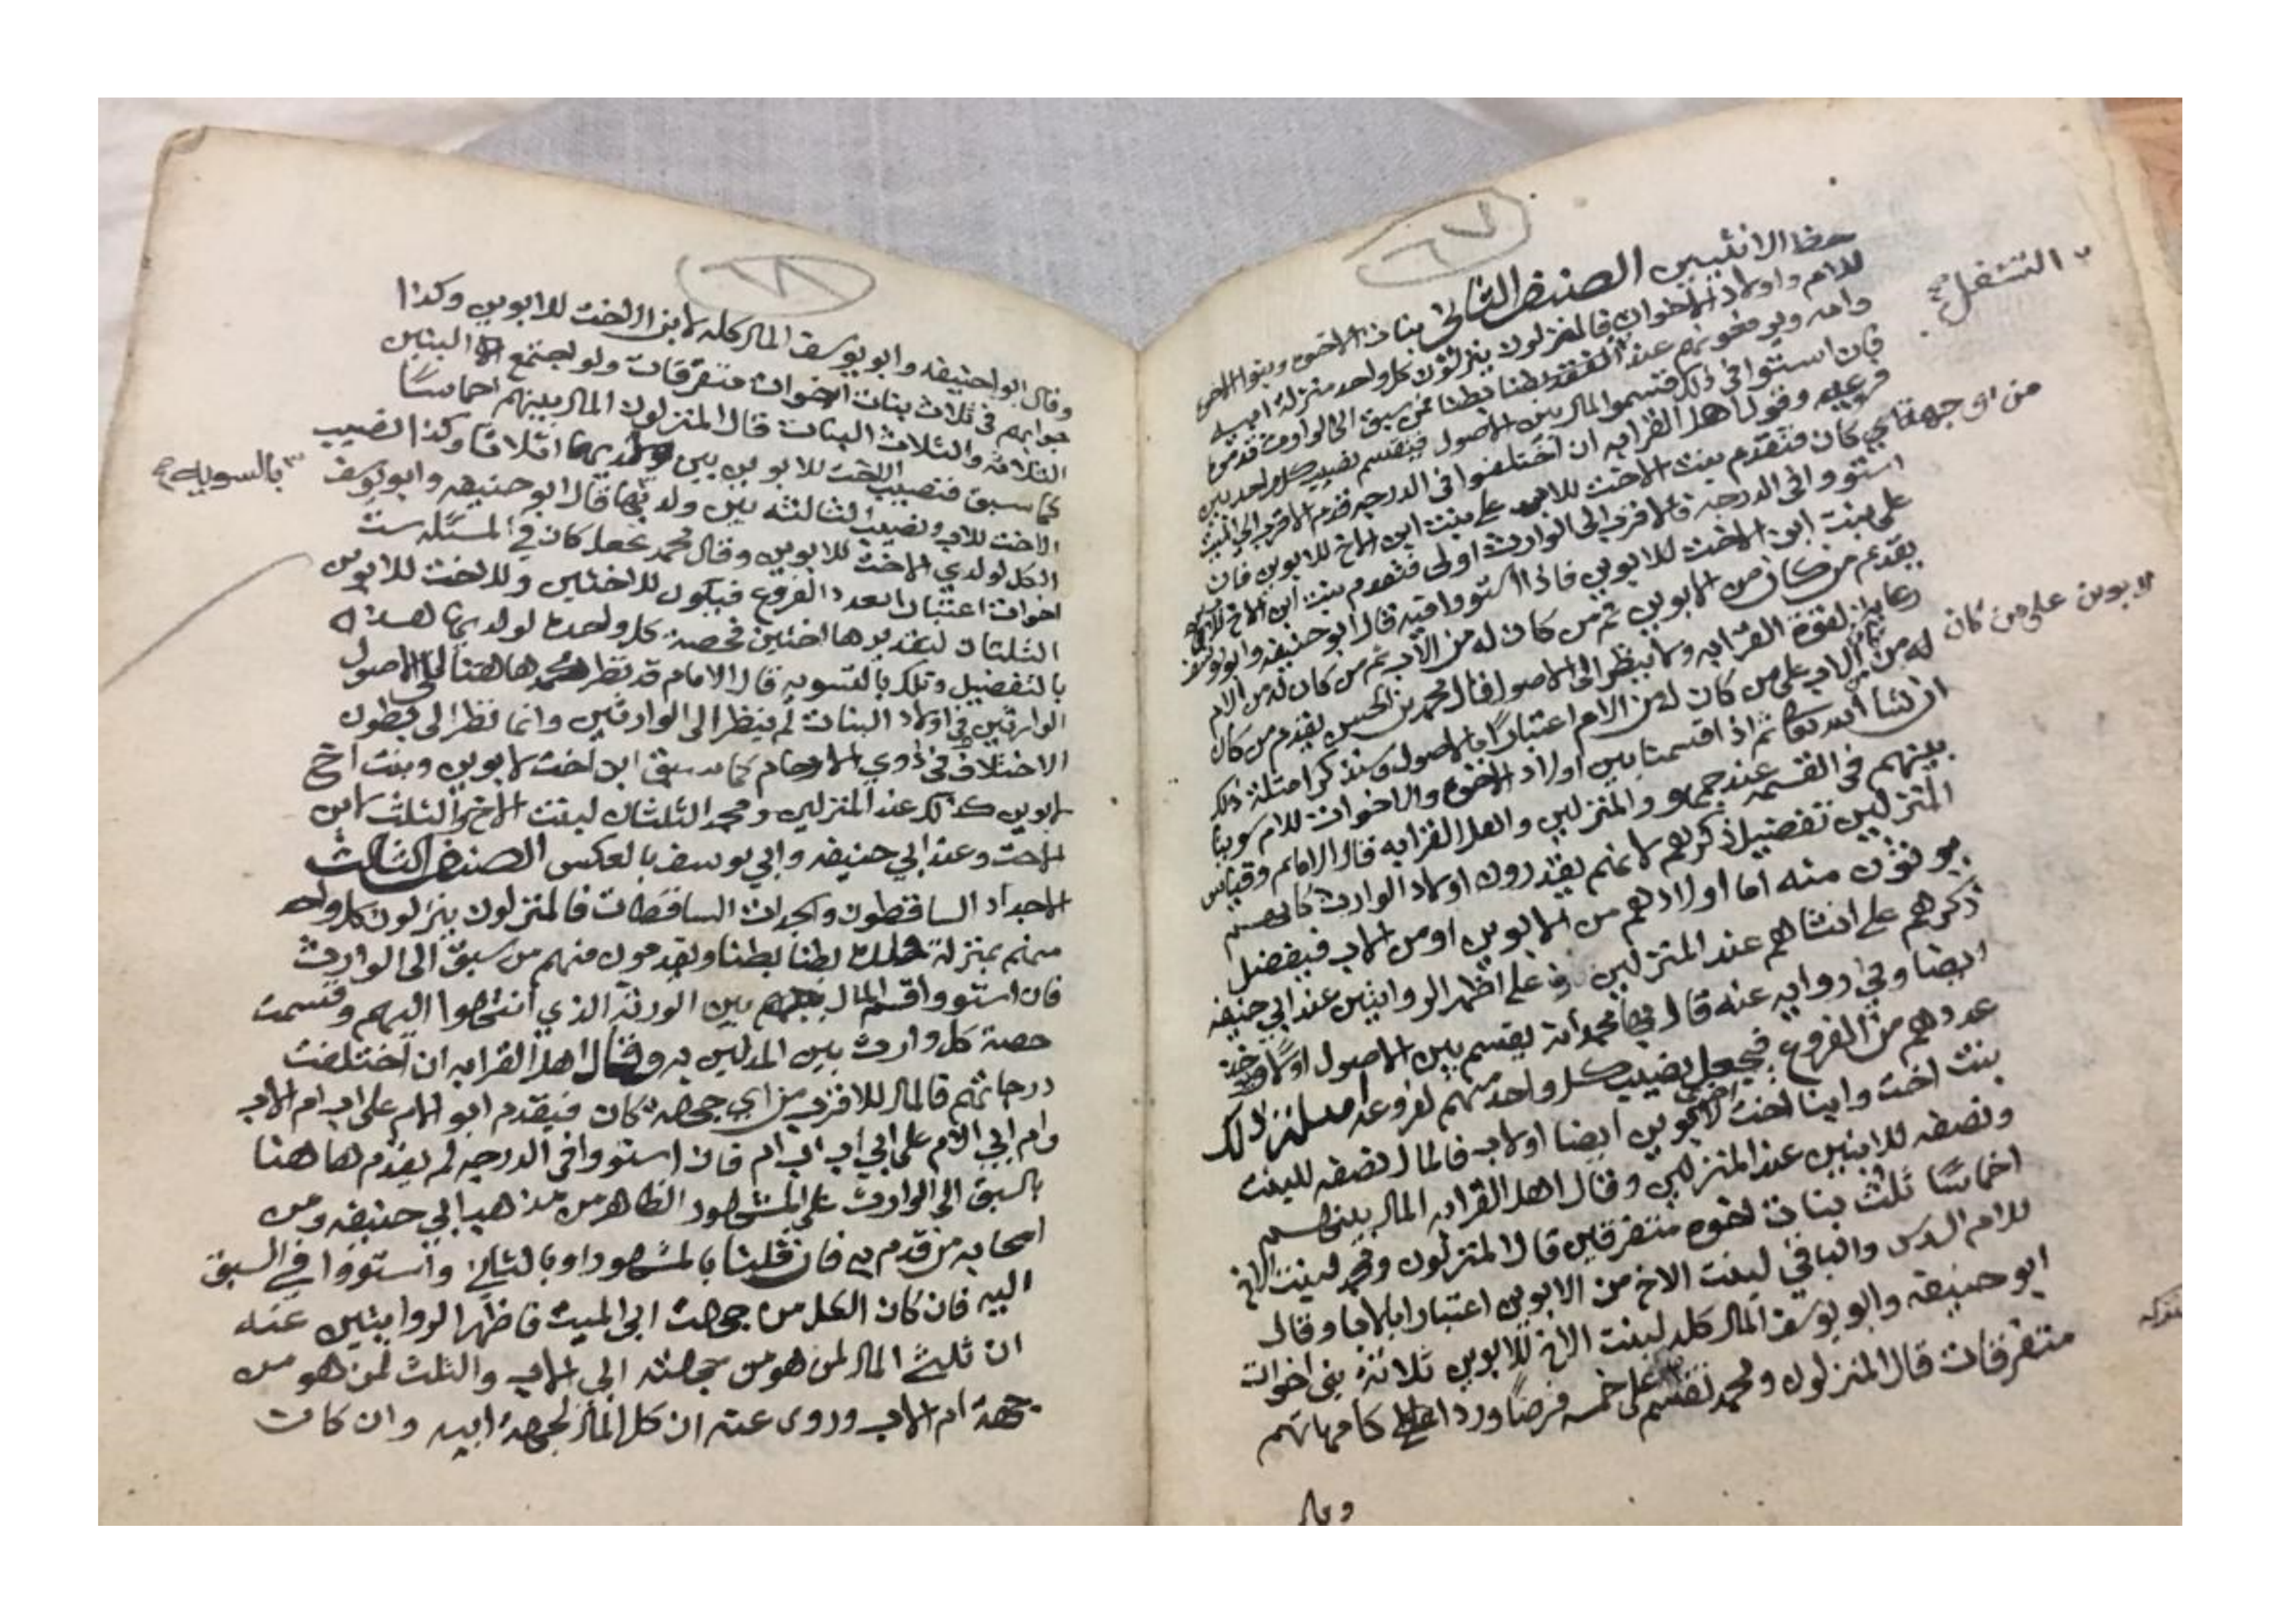 ٦٧
حظ الانثيين الصنف الثاني بنات الاخوة وبنوا الاخوة
للام واولاد الاخوات فالمنزلون ينزلون كل واحد منزلة ابيه
وامه ويرفعونهم عند التسفل بطنا بطنا فمن سبق الى الوارث قدموه
٢ التسفل صح
فان استووا في ذلك قسموا المال بين الاصول فيقسم نصيب كل واحد بين
فروعه وقول اهل القرابه ان اختلفوا في الدرجه قدم الاقرب الى الميت
من اي جهة كان فتقدم بنت الاخت للام على بنت ابن الاخ للابوين فان
استووا في الدرجه فالاقرب الى الوارث اولى فتقدم بنت ابن الاخ للاب
على بنت ابن الاخت للابوين فاذا استووا فيه قال ابو حنيفه وابو يوسف
يقدم من كان من الابوين ثم من كان له من الاب ثم من كان له من الام
رعاية لقوة القرابه ولا ينظر الى الاصول قال محمد بن الحسن يقدم من كان
الابوين على من كان
له من الاب على من كان له من الام اعتبارا بالاصول وسنذكر امثلة ذلك
ان شا الله تعالى ثم اذا قسمنا بين اولاد الاخوة والاخوات للام سوينا
بينهم في القسمه عند جمهور المنزلين واهل القرابه قال الامام وقياس
المنزلين تفضيل ذكرهم لانهم يقدرون اولاد الوارث كانهم
يورثون منه اما اولادهم من الابوين او من الاب فيفضل
ذكرهم على انثاهم عند المنزلين وعلى اظهر الروايتين عند ابي حنيفه
ايضا وفي روايه عنه قال بها محمد انه يقسم بين الاصول اولا
عددهم من الفروع فيجعل نصيب كل واحد منهم لفروعه امثلة ذلك
بنت اخت وابنا اخت اخرى لابوين ايضا او لاب فالمال نصفه للبنت
ونصفه للابنين عند المنزلين وقال اهل القرابه المال بينهم
اخماسا ثلث بنات اخوه متفرقين قال المنزلون ومحمد لبنت الاخ
للام السدس والباقي لبنت الاخ من الابوين اعتبارا بالابا وقال
ابو حنيفه وابو يوسف المال كله لبنت الاخ للابوين ثلاثة بني اخوات
متفرقات قال المنزلون ومحمد يقسم على خمسه فرضا وردا كامهاتهم
وقال
٦٨
وقال ابو حنيفه وابو يوسف المال كله لابن الاخت للابوين وكذا
جوابهم في ثلاث بنات اخوات متفرقات ولو اجتمع البنين
الثلاثة والثلاث البنات قال المنزلون المال بينهم اخماسا
كما سبق فنصيب الاخت للابوين بين ولديها اثلاثا وكذا نصيب
الاخت للاب ونصيب الثالثه بين ولديها قال ابو حنيفه وابو يوسف
٣ بالسويه صح
الكل لولدي الاخت للابوين وقال محمد يجعل كان في المسئله ست
اخوات اعتبارا بعدد الفروع فيكون للاختين وللاخت للابوين
الثلثان لتقديرها اختين فحصة كل واحدة لولديها هذه
بالتفضيل وتلك بالتسويه قال الامام قد نظر محمد هاهنا الى الاصول
الوارثين وفي اولاد البنات لم ينظر الى الوارثين وانما نظر الى بطون
الاختلاف في ذوي الارحام كما سبق ابن اخت لابوين وبنت اخ
لابوين كذلك عند المنزلين ومحمد الثلثان لبنت الاخ والثلث لابن
الاخت وعند ابي حنيفه وابي يوسف بالعكس الصنف الثالث
الاجداد الساقطون والجدات الساقطات فالمنزلون ينزلون كل واحد
منهم بمنزلة بطنا بطنا ويقدمون منهم من سبق الى الوارث
فان استووا قسم المال بين الورثة الذي انتهوا اليهم وقسمت
حصة كل وارث بين المدلين به وقال اهل القرابه ان اختلفت
درجاتهم فالمال للاقرب من اي جهه كان فيقدم ابو الام على اب ام الاب
وام ابي الام على ابي اب اب ام فان استووا في الدرجه لم يقدم هاهنا
بالسبق الى الوارث على المشهور الظاهر من مذهب ابي حنيفه ومن
اصحابه من قدم به فان قلنا بالمشهور او بالثاني واستووا في السبق
اليه فان كان الكل من جهت ابي الميت فاظهر الروايتين عنه
ان ثلثي المال لمن هو من جهته ابي الاب والثلث لمن هو من
جهة ام الاب وروى عنه ان كل المال لجهة ابيه وان كانت